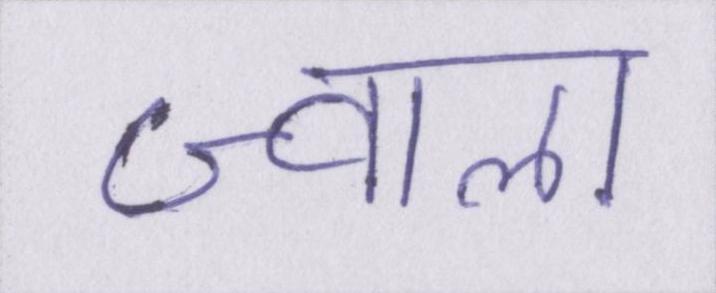 ज्वाला